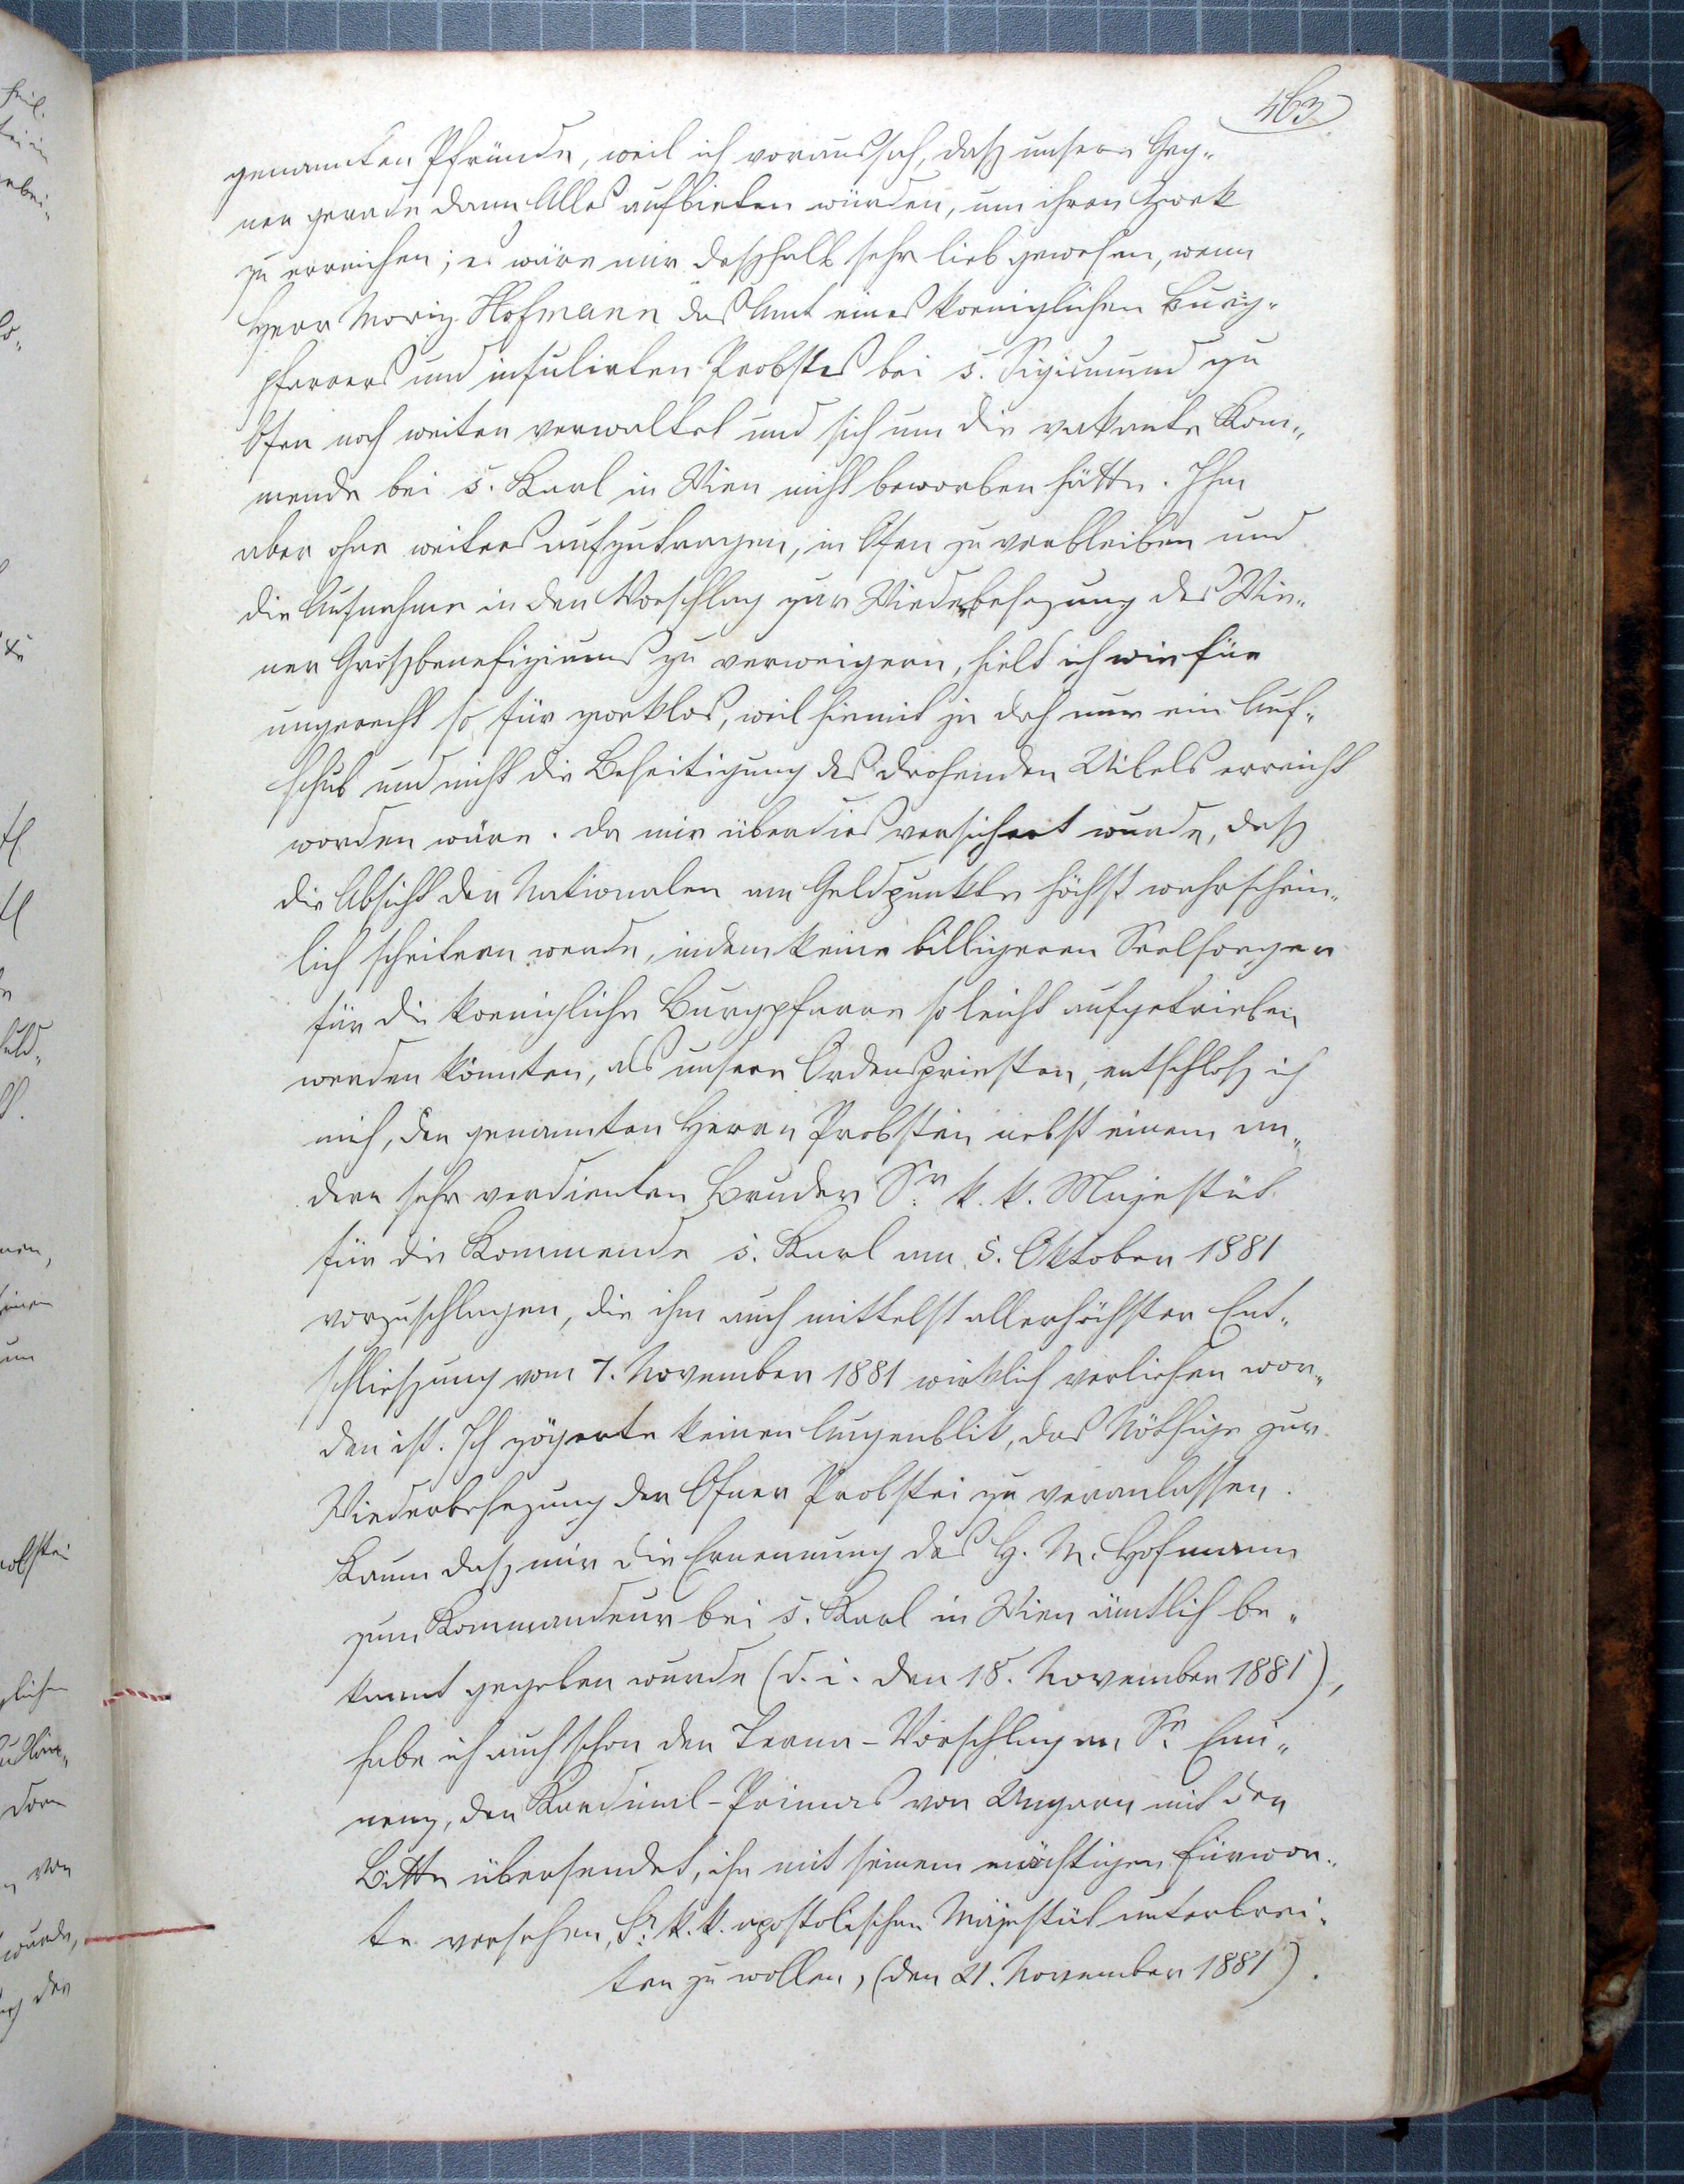 463
genannten Pfründe, weil ich voraussah, dasz unsere Geg-
ner gerade dann Alles aufbieten würden, um ihren Zwek
zu erreichen; es wäre mir deszhalb sehr lieb gewesen, wenn
Herr Moriz Hofmann das Amt eines koeniglichen Burg-
pfarrers und infulirten Probstes bei s. Sigismund zu
Ofen noch weiter verwaltet und sich um die vakante Kom-
mende bei s. Karl in Wien nicht beworben hätte. Ihm
aber ohne weiters aufzutragen, in Ofen zu verbleiben und
die Aufnahme in den Vorschlag zur Wiederbesezung des Wie-
ner Groszbenefiziums zu verweigern, hielt ich wie für
ungerecht so für zweklos, weil hiemit ja doch nur ein Auf-
schub und nicht die Beseitigung des drohenden Uibels erreicht
worden wäre. Da mir überdies versichert wurde, dasz
die Absicht der Nationalen am Geldpunkte höchst wahrschein-
lich scheitern werde, indem keine billigeren Seelsorger
für die koenigliche Burgpfarre so leicht aufgetrieben
werden könnten, als unsere Ordenspriester, entschlosz ich
mich, den genannten Herrn Probsten nebst einem an-
dern sehr verdienten Bruder Sr. k. k. Majestät
für die Kommende s. Karl am 5. Oktober 1881
vorzuschlagen, die ihm auch mittelst allerhöchster Ent-
schlieszung vom 7. November 1881 wirklich verliehen wor-
den ist. Ich zögerte keinen Augenblik, das Nöthige zur
Wiederbesezung der Ofner Probstei zu veranlassen.
Kaum dasz mir die Ernennung des H. M. Hofmann
zum Kommandeur bei s. Karl in Wien ämtlich be-
kannt gegeben wurde (d. i. den 18. November 1881),
habe ich auch schon den Terna-Vorschlag an Se. Emi-
nenz, den Kardinal-Primas von Ungarn mit der
Bitte übersendet, ihn mit seinem mächtigen Fürwor-
te versehen, Sr. k. k. apostolischen Majestät unterbrei-
ten zu wollen, (den 21. November 1881).